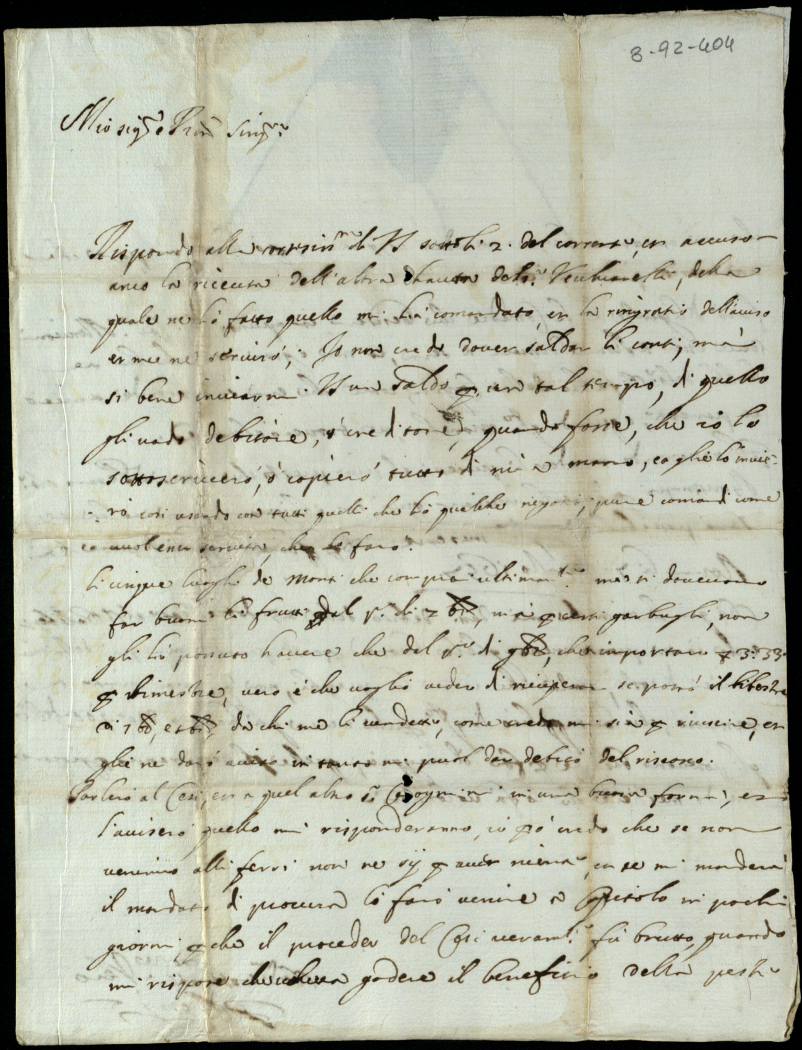 8-92-404
Mio sigre Pron Singre
Rispondo alla di VS sotto li 2. del corrente, en accuso
anco la ricevuta dell'altra havuta del Sr Vecchiarelli, della
quale ne hò fatto quello mi hà comandato, en la ringratio dell'aviso
en me ne servirò; Io non credo dover saldar li conti, mà
si bene inviarmi VS un saldo p un tal tempo, di quello
gli vado debitore, ò creditore, quando forse, che io lo
sottoscriverò, ò copierò tutto di mia mano, e glie lo invie-
rò così usando con tutti quelli che hò negotii; pure comandi come
vuol esser servita, che lo farò.
li cinque luoghi de Monti che comprai ultimamte mesi dovevano
far buoni li frutti dal po di 7bre, mà p certi garbugli, non
gli hò possuto havere che del po di 9bre, che importano 3:33
p bimestre, vero è che voglio veder di ricuperar se potrò il bimestre
di 7bre, e 8bre da chi me li vendette, come credo mi sia p riuscire, en
glie ne darò aviso in tanto mi puol dar debito del riscosso.
Parlerò al Cesi, en a quel altro Sr in una buona forma, en
l'aviserò quello mi risponderanno, io però credo che se non
veniamo alli ferri non ne sij p aver niente, en se mi manderà
il mandato di procura lo farò venire a Capitolo in pochi
giorni p che il proceder del Cesi veramte fù brutto, quando
mi rispose che voleva godere il beneficio della peste